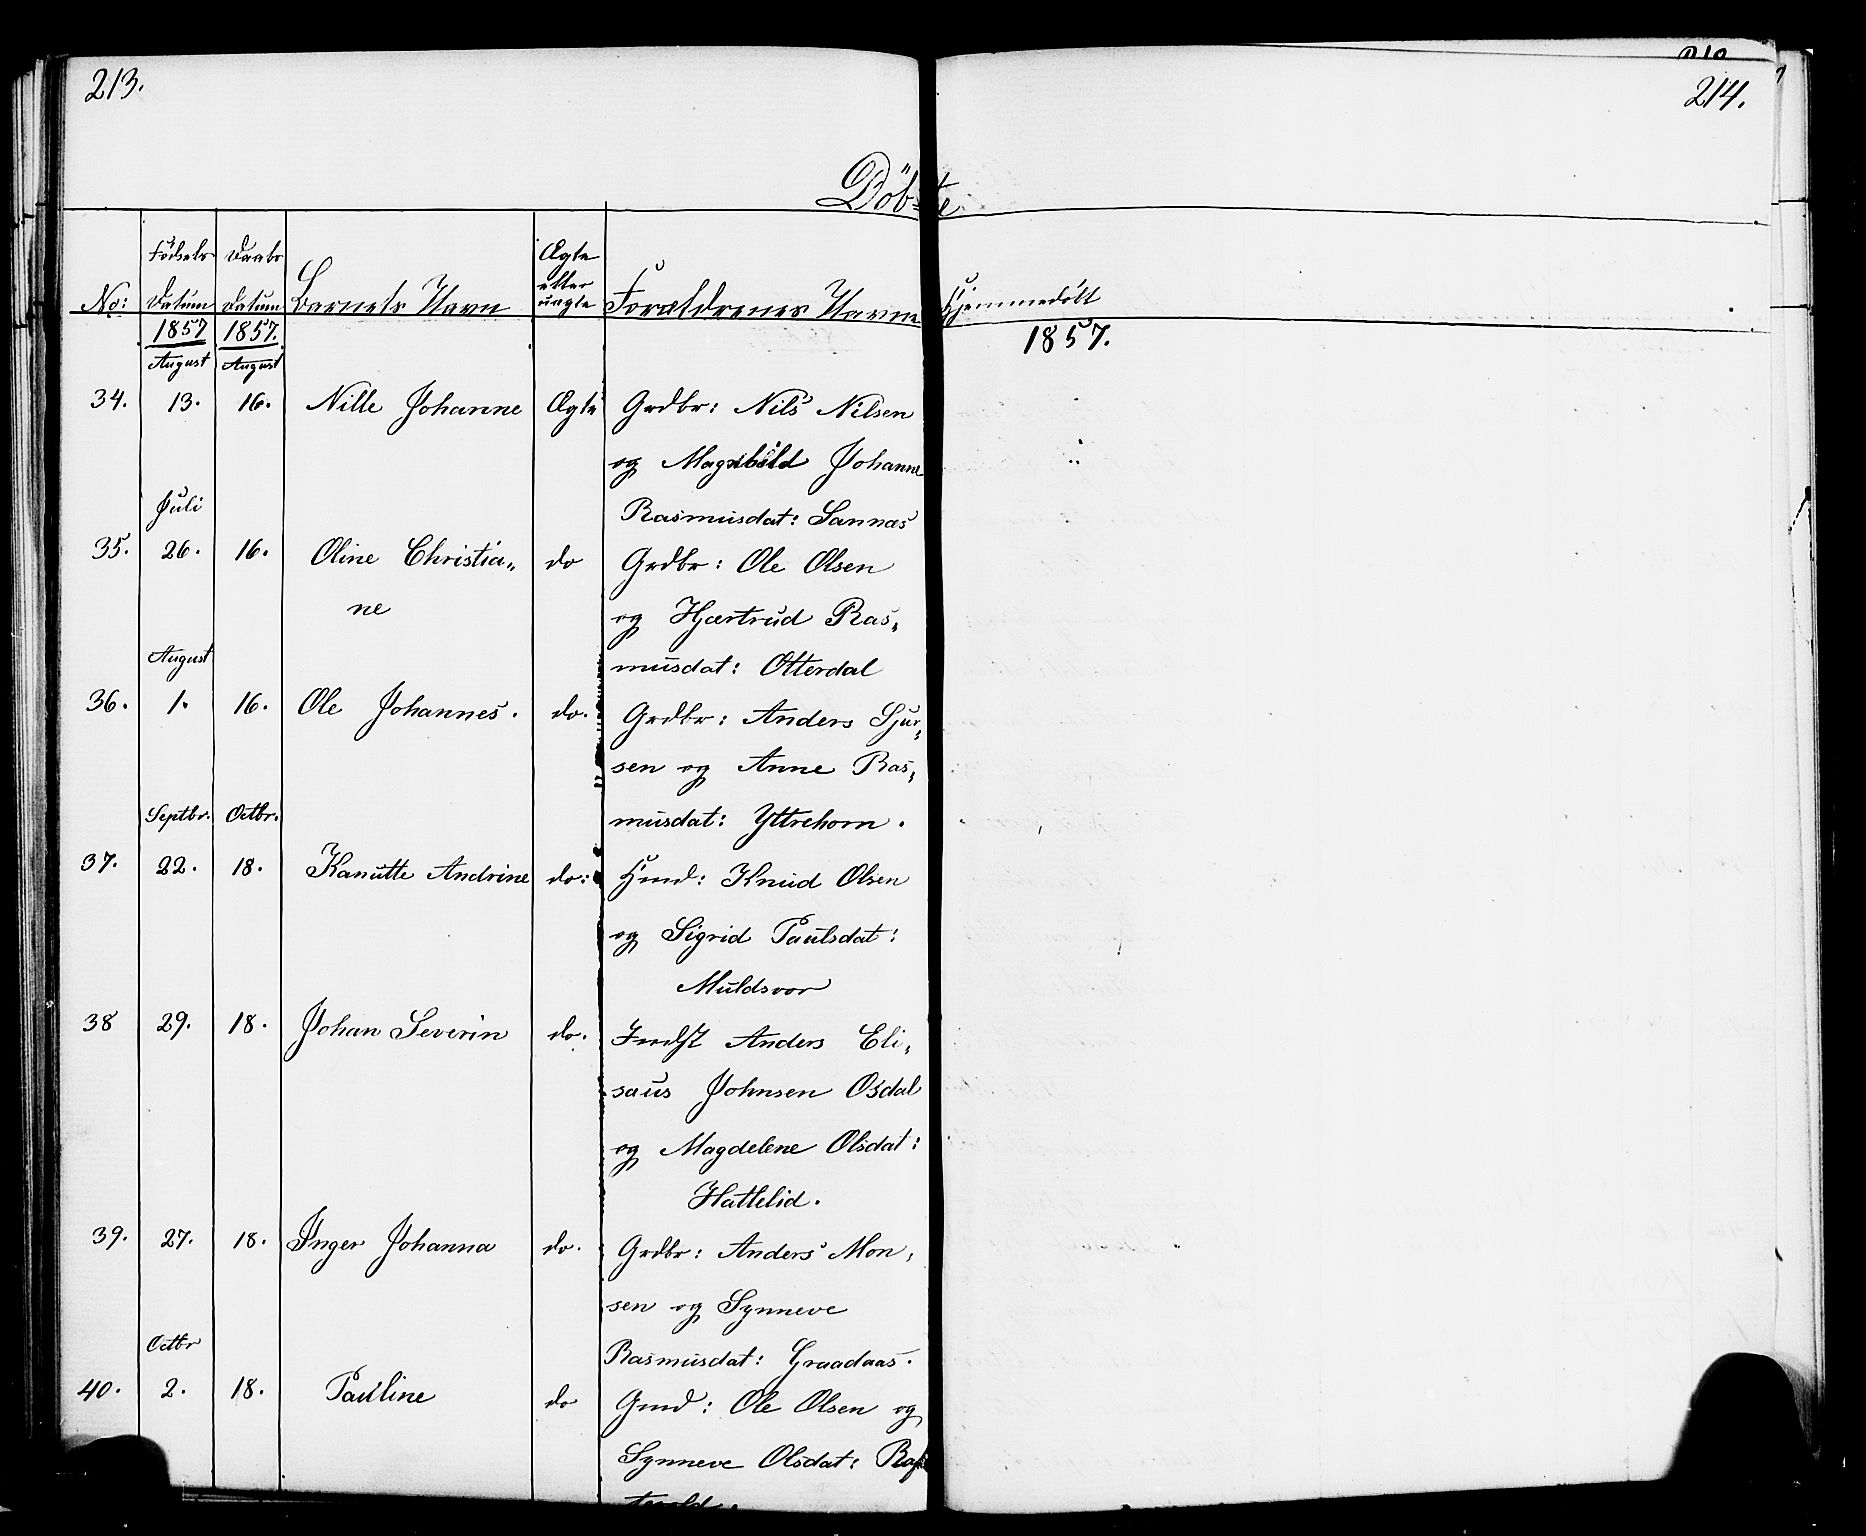 213.
214.
Döbte
No:
Födsels Datum
Daabs Datum
Barnets Navn
Ægte eller uægte
Forældrenes Navne
Hjemmedöbt
1857 1857. 1857.
August August
34. 13. 16. Nille Johanne Ægte Grdbr: Nils Nilsen
og Magnbild Johanne
Rasmusdat: Sannæs
Juli
35. 26. 16. Oline Christia„ do Grdbr: Ole Olsen
ne og Hjærtrud Ras„
musdat: Otterdal
August
36. 1. 16. Ole Johannes. do. Grdbr: Anders Sjur„
sen og Anne Ras„
musdat: Yttrehorn.
Septbr. Octbr.
37. 22. 18. Kanutte Andrine do: Hmd: Knud Olsen
og Sigrid Paulsdat:
Muldsvor
38 29. 18. Johan Severin do. Indst Anders Eli„
saus Johnsen Osdal
og Magdelene Olsdat:
Hattelid.
39. 27. 18. Inger Johanna do. Grdbr: Anders Mon„
sen og Synneve
Rasmusdat: Graadaas.
Octbr
40. 2. 18. Pauline do Gmd: Ole Olsen og
Synneve Olsdat: